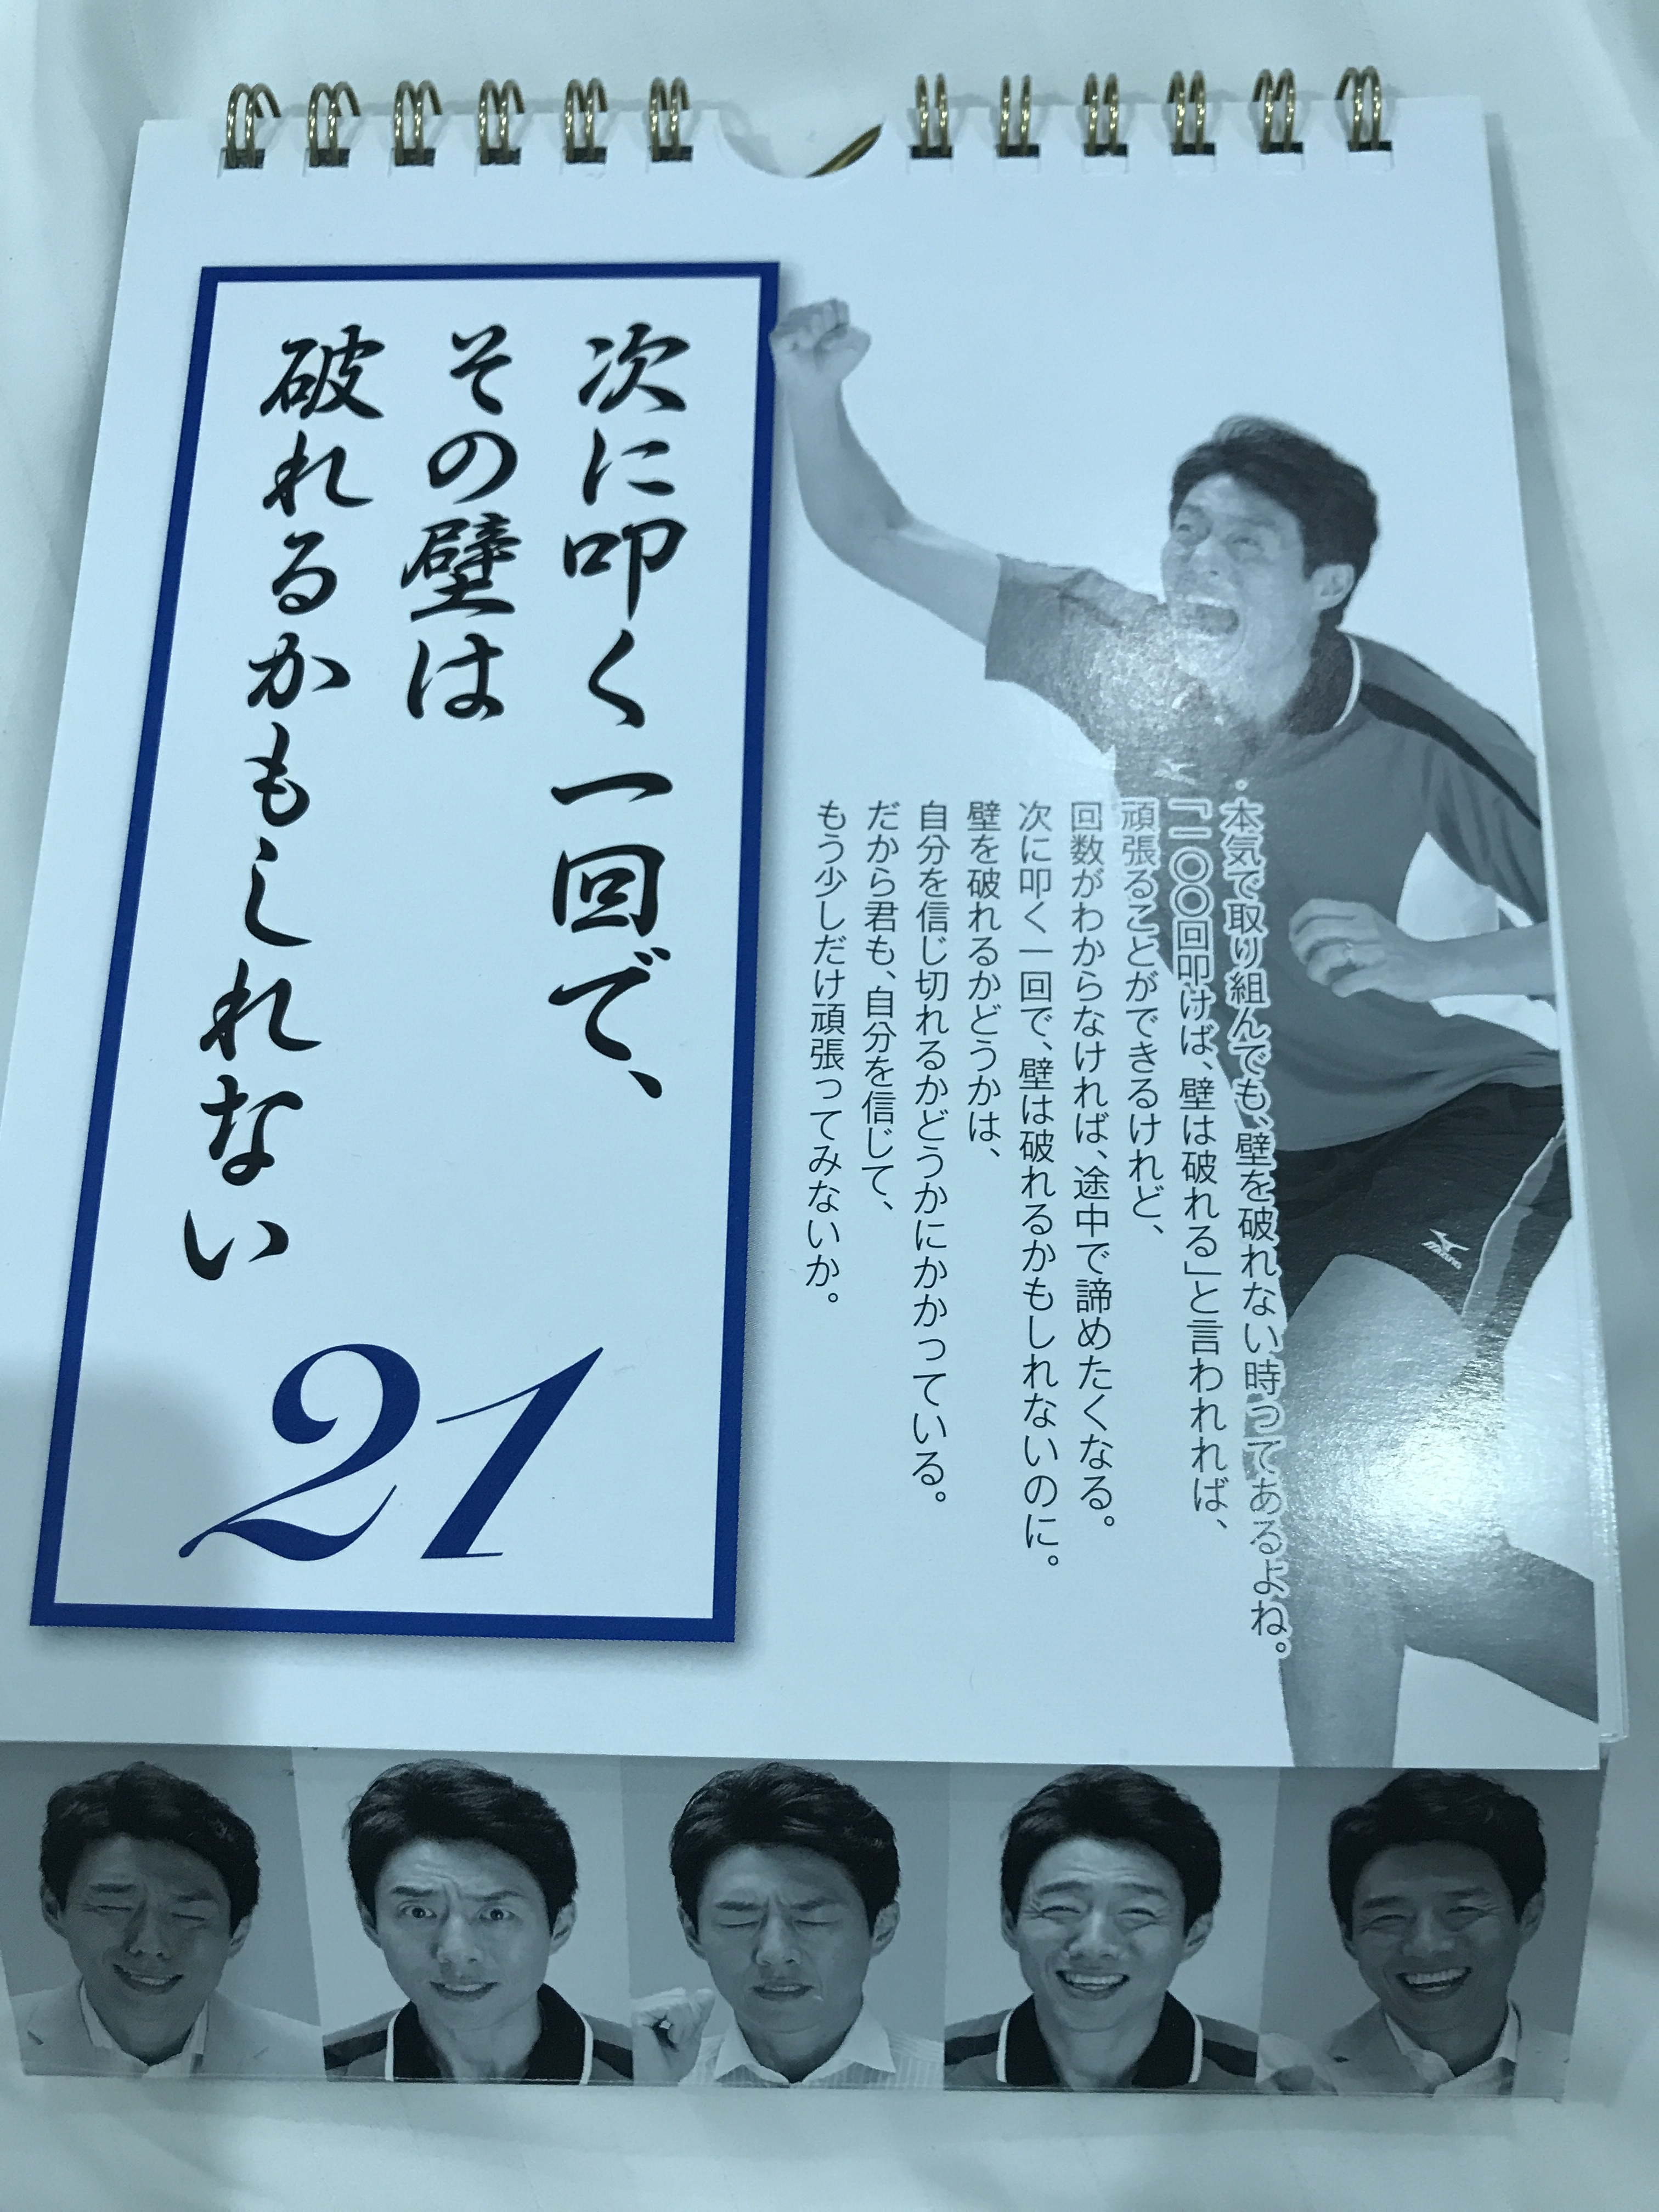 次に叩く一回で、
その壁は
破れるかもしれない
21
本気で取り組んでも、壁を破れない時ってあるよね。
「一〇〇回叩けば、壁は破れる」と言われれば、
頑張ることができるけれど、
回数がわからなければ、途中で諦めたくなる。
次に叩く一回で、壁は破れるかもしれないのに。
壁を破れるかどうかは、
自分を信じ切れるかどうかにかかっている。
だから君も、自分を信じて、
もう少しだけ頑張ってみないか。
MIZUNO